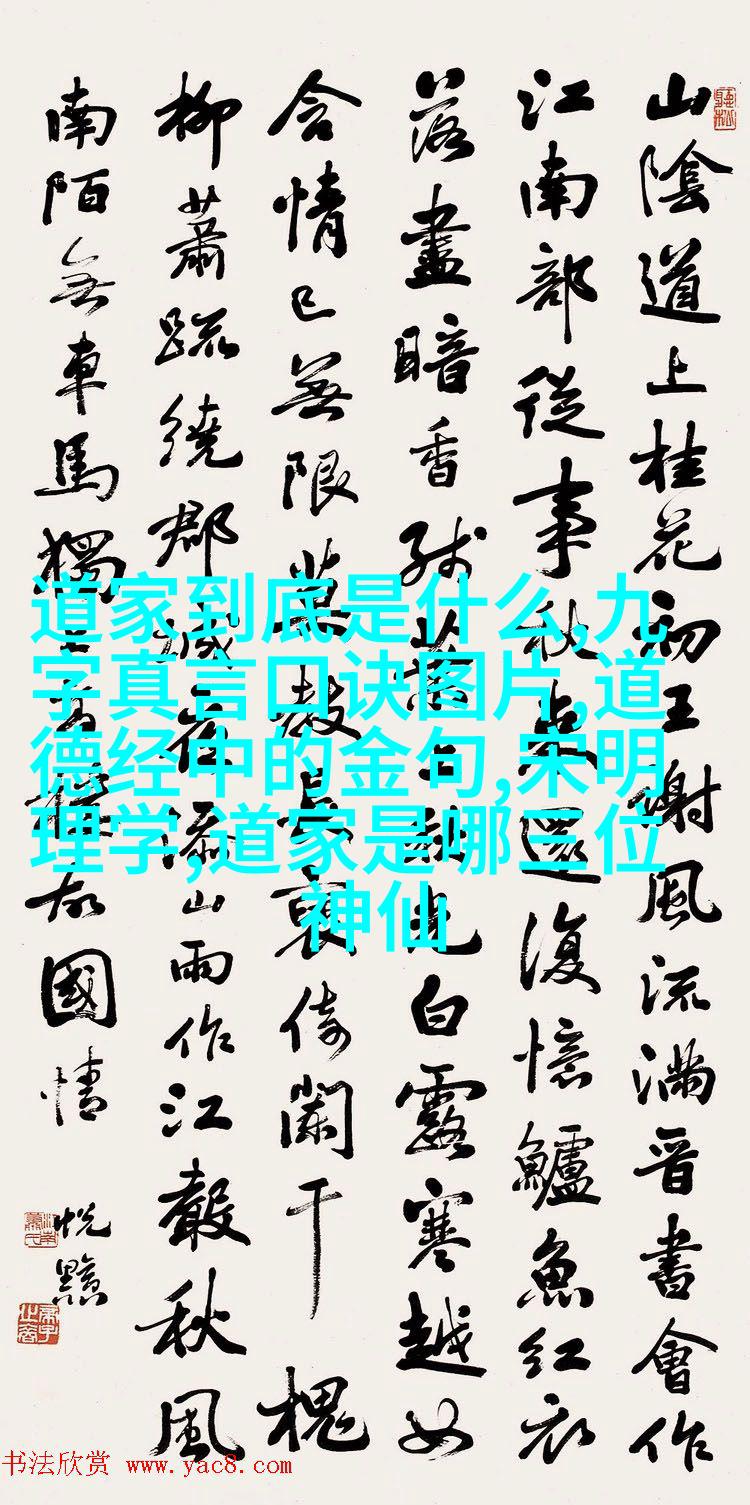 山陰道上桂花初王謝風流滿晉書會作
江南部從事秋来還復憶鱸魚紅衣
落盡暗香殘葉上秋光白露寒越女
含情已無限莫教長袖倚闌干 槐
柳蕭疏繞郡城夜添山雨作江聲秋風
南陌無車馬獨上高樓故國情
道家到底是什么,九
字真言口诀图片,道
德经中的金句,宋明
理学,道家是哪三位
神仙
书法欣赏 www.yac8.com